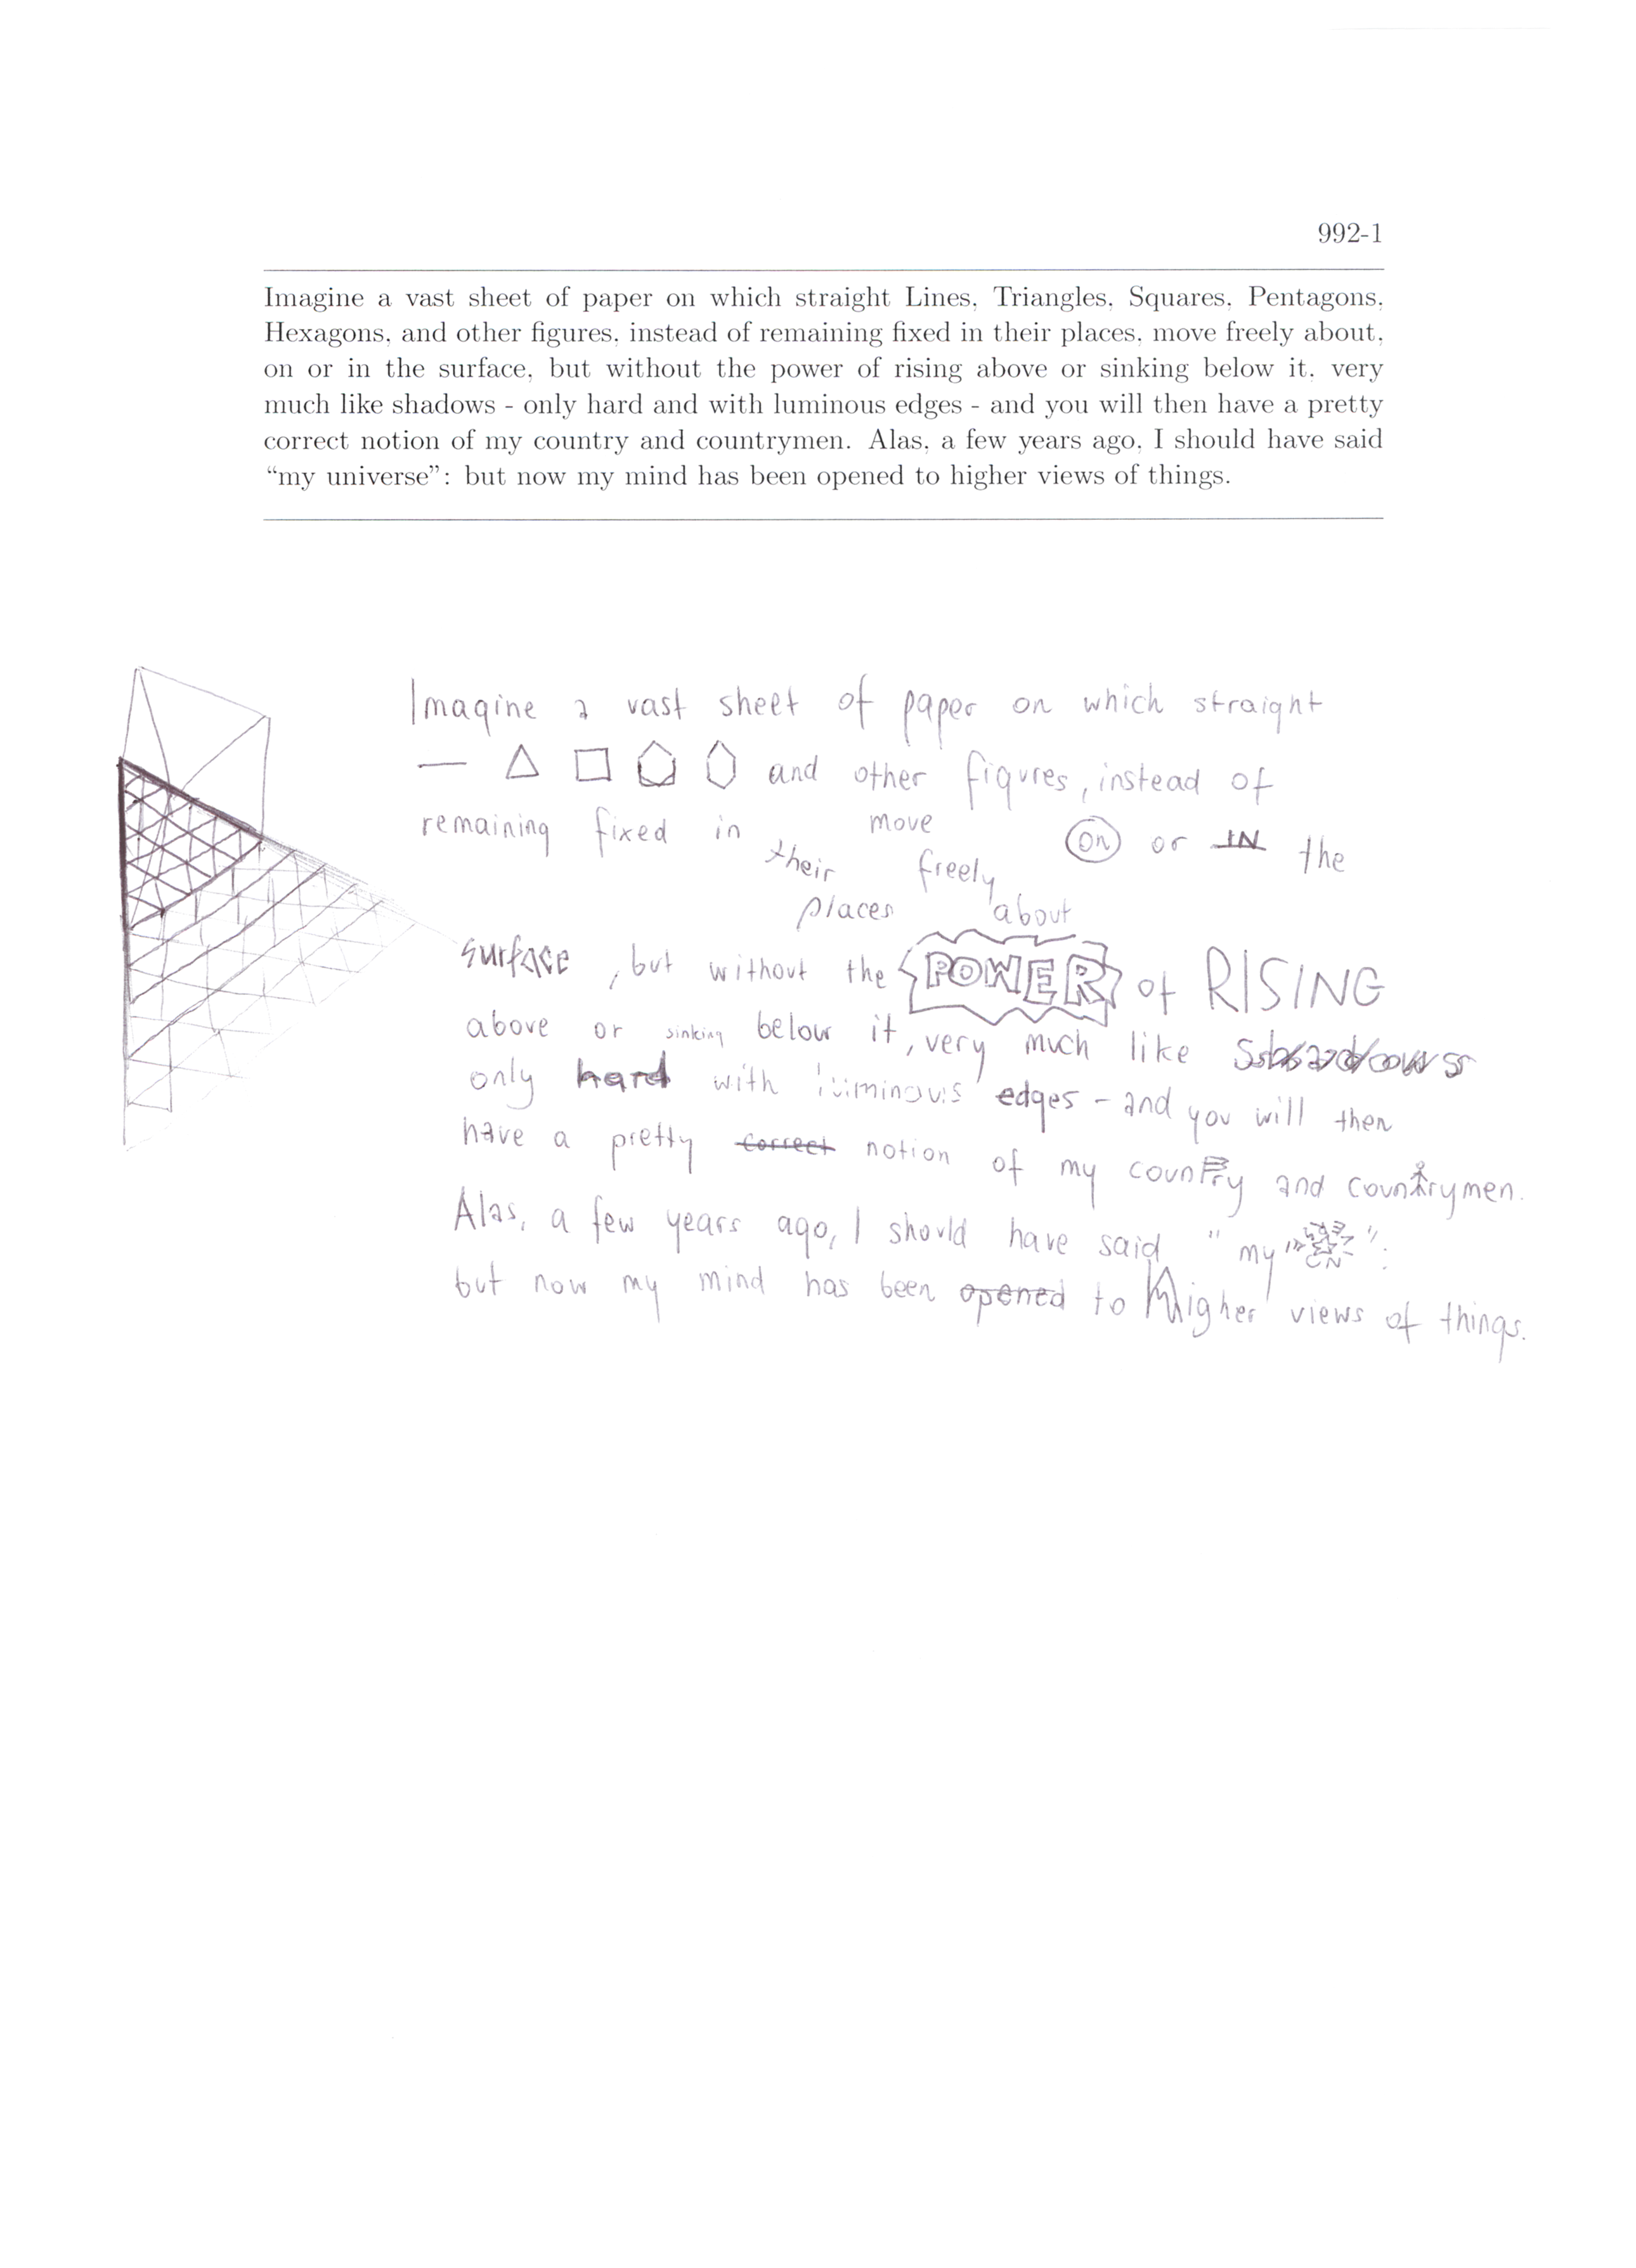 992-1
Imagine a vast sheet of paper on which straight Lines, Triangles, Squares, Pentagons,
Hexagons, and other figures, instead of remaining fixed in their places, move freely about,
on or in the surface, but without the power of rising above or sinking below it, very
much like shadows - only hard and with luminous edges - and you will then have a pretty
correct notion of my country and countrymen. Alas, a few years ago, I should have said
“my universe”: but now my mind has been opened to higher views of things.
Imagine a vast sheet of paper on which straight
and other figures, instead of
remaining fixed in their places move freely about on or IN the
surface, but without the POWER of RISING
above or sinking below it, very much like
only hard with luminous edges - and you will then
have a pretty correct notion of my country and countrymen.
Alas, a few years ago, I should have said "my ":
but now my mind has been opened to higher views of things.